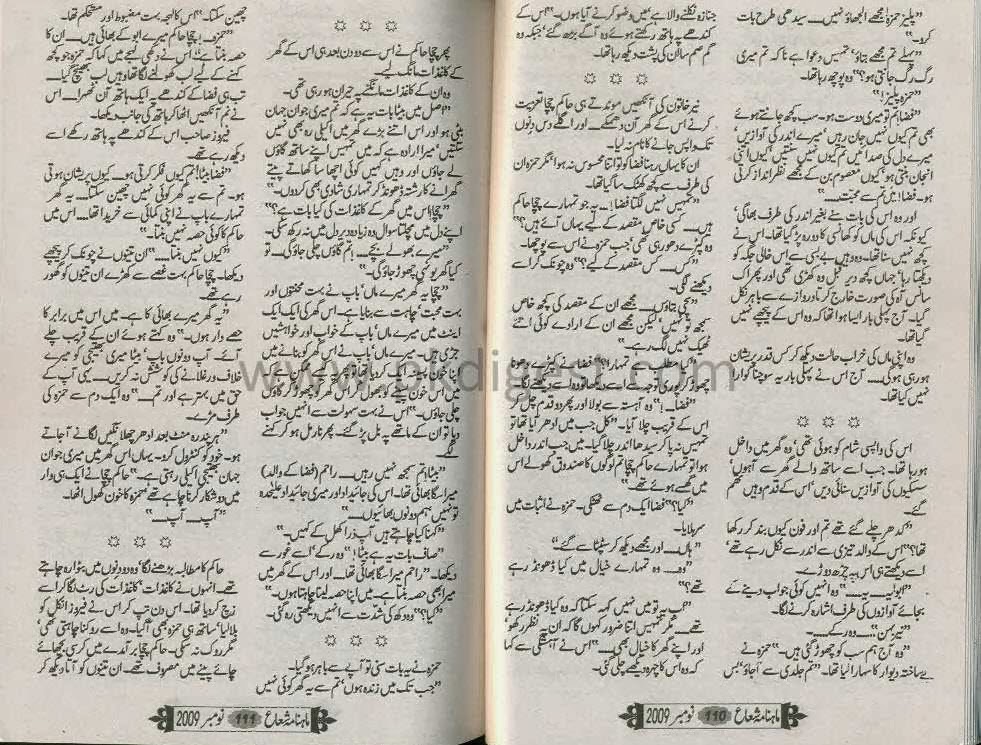 ”پلیز حمزہ! مجھے الجھاؤ نہیں..... سیدھی طرح بات
کرو۔“
”پہلے تم مجھے بتاؤ، تمہیں دعوا ہے ناکہ تم میری
رگ رگ جانتی ہو؟“ وہ پوچھ رہا تھا۔
”حمزہ پلیز!“
”فضا! تم تو میری دوست ہو۔ سب کچھ جانتے ہوئے
بھی تم کیوں نہیں جان رہیں، میرے اندر کی آوازیں،
میرے دل کی صدا میں تم کیوں نہیں سنتیں، کیوں اتنی
انجان بنتی ہو، کیوں معصوم بن کے مجھے نظر انداز کرتی
ہو۔ فضا! میں تم سے محبت.....“
اور وہ اس کی بات سنے بغیر اندر کی طرف بھاگی،
کیونکہ اس کی ماں کو کھانسی کا دورہ پڑ گیا تھا۔ اس نے
کچھ نہیں سنا تھا۔ وہ وہیں بے بسی سے اس خالی جگہ کو
دیکھتا رہا، جہاں کچھ دیر قبل وہ کھڑی تھی اور پھر اک
سانس آہ کی صورت خارج کرتا، دروازے سے باہر نکل
گیا۔ آج پہلی بار ایسا ہوا تھا کہ وہ اس کے پیچھے نہیں
گیا تھا۔
وہ اپنی ماں کی خراب حالت دیکھ کر کس قدر پریشان
ہو رہی ہوگی..... آج اس نے پہلی بار یہ سوچنا گوارا
نہیں کیا تھا۔
☼ ☼ ☼
اس کی واپسی شام کو ہوئی تھی، وہ گھر میں داخل
ہو رہا تھا۔ جب اسے ساتھ والے گھر سے آہوں،
سسکیوں کی آوازیں سنائی دیں، اس کے قدم وہیں تھم
گئے۔
”کدھر چلے گئے تھے تم اور فون کیوں بند کر رکھا
تھا؟“ اس کے والد تیزی سے اندر سے نکل رہے تھے،
اسے دیکھتے ہی اس پہ چڑھ دوڑے۔
”ابو! یہ..... یہ.....“ وہ انہیں کوئی جواب دینے کے
بجائے آوازوں کی طرف اشارہ کرنے لگا۔
”نیر بہن“..... وہ رکے.....۔
”وہ آج ہم سب کو چھوڑ گئی ہیں۔“ حمزہ نے
بے ساختہ دیوار کا سہارا لیا تھا۔ ”تم جلدی سے آ جاؤ، بس
جنازہ نکلنے والا ہے، میں وضو کرنے آیا ہوں۔“ اس کے
کندھے پہ ہاتھ رکھتے ہوئے وہ آگے بڑھ گئے، جبکہ وہ
گم صم سا ان کی پشت دیکھ رہا تھا۔
☼ ☼ ☼
نیر خاتون کی آنکھیں موندتے ہی حاکم چچا تعزیت
کرنے اس کے گھر آن دھمکے..... اور اگلے دس دنوں
تک واپس جانے کا نام نہ لیا۔
ان کا یہاں رہنا فضا کو تو اتنا محسوس نہ ہوا، مگر حمزہ ان
کی طرف سے کچھ کھٹک سا گیا تھا۔
”تمہیں نہیں لگتا فضا!..... یہ جو تمہارے چچا حاکم
ہیں..... کسی خاص مقصد کے لیے یہاں آئے ہیں؟“
وہ کپڑے دھو رہی تھی، جب حمزہ نے اس سے پوچھا۔
”کس..... کس مقصد کے لیے؟“ وہ چونک کر اسے
دیکھنے لگی۔
”سچی بتاؤں..... مجھے ان کے مقصد کی کچھ خاص
سمجھ تو نہیں، لیکن مجھے ان کے ارادے کوئی اتنے
ٹھیک نہیں لگ رہے۔“
”کیا مطلب ہے تمہارا؟“ فضا نے کپڑے دھونا
چھوڑ کر پوری توجہ سے اسے دیکھا تو وہ اسے دیکھنے لگا۔
”فضا.....!“ وہ آہستہ سے بولا اور پھر دو قدم چل کر
اس کے قریب چلا آیا۔ ”کل جب میں ادھر آیا تھا تو
تمہیں نہ پا کر سیدھا اندر چلا گیا۔ میں جب اندر داخل
ہوا تو تمہارے حاکم چچا تم لوگوں کا صندوق کھولے اس
میں گھسے ہوئے تھے۔“
”کیا؟“ فضا ایک دم سے ٹھٹکی۔ حمزہ نے اثبات میں
سر ہلایا۔
”ہاں..... اور مجھے دیکھ کر سٹپٹا سے گئے۔“
”وہ..... وہ تمہارے خیال میں کیا ڈھونڈ رہے
تھے؟“
”اب یہ تو میں نہیں کہہ سکتا کہ وہ کیا ڈھونڈ رہے
تھے..... مگر تمہیں اتنا ضرور کہوں گا کہ ان پہ نظر رکھو،
اور اپنے گھر کا خیال بھی.....“ اس نے آہستگی سے کہا
کہ وہ اس کا چہرہ دیکھے چلی گئی۔
ماہنامہ شعاع 110 نومبر 2009
☼ ☼ ☼
پھر چچا حاکم نے اس سے دو دن بعد ہی اس کے گھر
کے کاغذات مانگ لیے۔
وہ ان کے کاغذات مانگنے پہ حیران ہو رہی تھی۔
”اصل میں بیٹا! بات یہ ہے کہ تم میری جوان جہان
بیٹی ہو اور اس اتنے بڑے گھر میں اکیلی رہ بھی نہیں
سکتیں، میرا ارادہ ہے کہ میں تمہیں اپنے ساتھ گاؤں
لے جاؤں اور وہیں کوئی اچھا سا کھاتے پیتے
گھرانے کا رشتہ ڈھونڈ کر تمہاری شادی بھی کر دوں۔“
”چچا! اس میں گھر کے کاغذات کی کیا بات ہے؟“
اپنے دل میں مچلتا سوال وہ زیادہ دیر دل میں نہ رکھ سکی۔
”میرے بھولے بچے..... تم گاؤں چلی جاؤ گی، تو
کیا گھر یونہی چھوڑ جاؤ گی۔“
”چچا! یہ گھر میرے ماں، باپ نے بہت محنتوں اور
بہت محبت، چاہت سے بنایا ہے۔ اس گھر کی ایک ایک
اینٹ میں میرے ماں، باپ کے خواب اور خواہشیں
جڑی ہیں۔ میرے ماں، باپ نے اس گھر کو بنانے میں
اپنا خون پسینہ بہایا ہے اور
میں اس خون پسینے کو بھول کر اس گھر کو چھوڑ کر گاؤں
چلی جاؤں۔“ اس نے بہت سہولت سے انہیں جواب
دیا تو ان کے ماتھے پہ بل پڑ گئے۔ پھر نارمل ہو کر کہنے
لگے۔
”بیٹا! تم سمجھ نہیں رہیں..... راحم (فضا کے والد)
میرا سگا بھائی تھا۔ اس کی جائیداد اور میری جائیداد علیحدہ
تو نہیں، ہم دونوں بھائیوں.....“
”کہنا کیا چاہتے ہیں آپ ذرا کھل کے کہیں۔“
”صاف بات یہ ہے بیٹا!“ وہ رکے، اسے غور سے
دیکھا۔ ”راحم میرا سگا بھائی تھا..... اور اس کے گھر میں
میرا بھی حصہ بنتا ہے۔ میں اپنا حصہ لینا چاہتا ہوں۔“
”کیا؟“ وہ دکھ کی شدت سے انہیں دیکھتی رہ گئی۔
☼ ☼ ☼
حمزہ نے یہ بات سنی تو آپے سے باہر ہو گیا۔
”جب تک میں زندہ ہوں، تم سے یہ گھر کوئی نہیں
چھین سکتا۔“ اس کا لہجہ بہت مضبوط اور مستحکم تھا۔
”حمزہ..... ! چچا حاکم میرے ابو کے بھائی ہیں..... ان کا
حصہ بنتا ہے۔“ اس نے دھیمی لہجے میں کہا کہ حمزہ جو کچھ
کہنے کے لیے لب کھولنے لگا تھا وہیں لب بھینچ گیا۔
تب ہی فضا کے کندھے پہ ایک ہاتھ آن ٹھہرا۔ اس
نے نم آنکھیں اٹھا کر ہاتھ کی جانب دیکھا۔
فیروز صاحب اس کے کندھے پہ ہاتھ رکھے اسے
دیکھ رہے تھے۔
”فضا بیٹا! تم کیوں فکر کرتی ہو..... کیوں پریشان ہوتی
ہو۔ تم سے یہ گھر کوئی نہیں چھین سکتا..... یہ گھر
تمہارے باپ نے اپنی کمائی سے خریدا تھا۔ اس میں
حاکم کا کوئی حصہ نہیں بنتا۔“
”کیوں نہیں بنتا.....“ ان تینوں نے چونک کر پیچھے
دیکھا۔ چچا حاکم بہت غصے سے کھڑے ان تینوں کو گھور
رہے تھے۔
”یہ گھر میرے بھائی کا ہے۔ میں اس میں برابر کا
حصے دار ہوں۔“ وہ کہتے ہوئے ان کے قریب چلے
آئے۔ آپ دونوں باپ، بیٹا میری بھتیجی کو میرے
خلاف ورغلانے کی کوشش نہ کریں..... یہی آپ کے
حق میں بہتر ہے اور تم.....“ وہ ایک دم سے حمزہ کی
طرف مڑے۔
”ہر پندرہ منٹ بعد ادھر چھلانگیں لگانے آ جاتے
ہو۔ خود کو کنٹرول کرو۔ یہاں اس گھر میں میری جوان
جہان بھتیجی اکیلی رہتی ہے۔“ حاکم چچا نے ایک ہی وار
میں دو شکار کرنا چاہے تھے، حمزہ کا خون کھول اٹھا۔
”آپ..... آپ.....“
☼ ☼ ☼
حاکم کا مطالبہ بڑھنے لگا، وہ دو دنوں میں بٹوارہ چاہتے
تھے۔ انہوں نے کاغذات، کاغذات کی رٹ لگا کر اسے
زچ کر دیا تھا۔ اس دن تپ کر اس نے فیروز انکل کو
بلا لیا، ساتھ ہی حمزہ بھی آگیا۔ وہ اسے روکنا چاہتی تھی،
مگر روک نہ سکی۔ حاکم چچا برآمدے میں کرسی بچھائے
چائے پینے میں مصروف تھے۔ ان تینوں کو آتا دیکھ کر
ماہنامہ شعاع 111 نومبر 2009
www.pkdigest.com